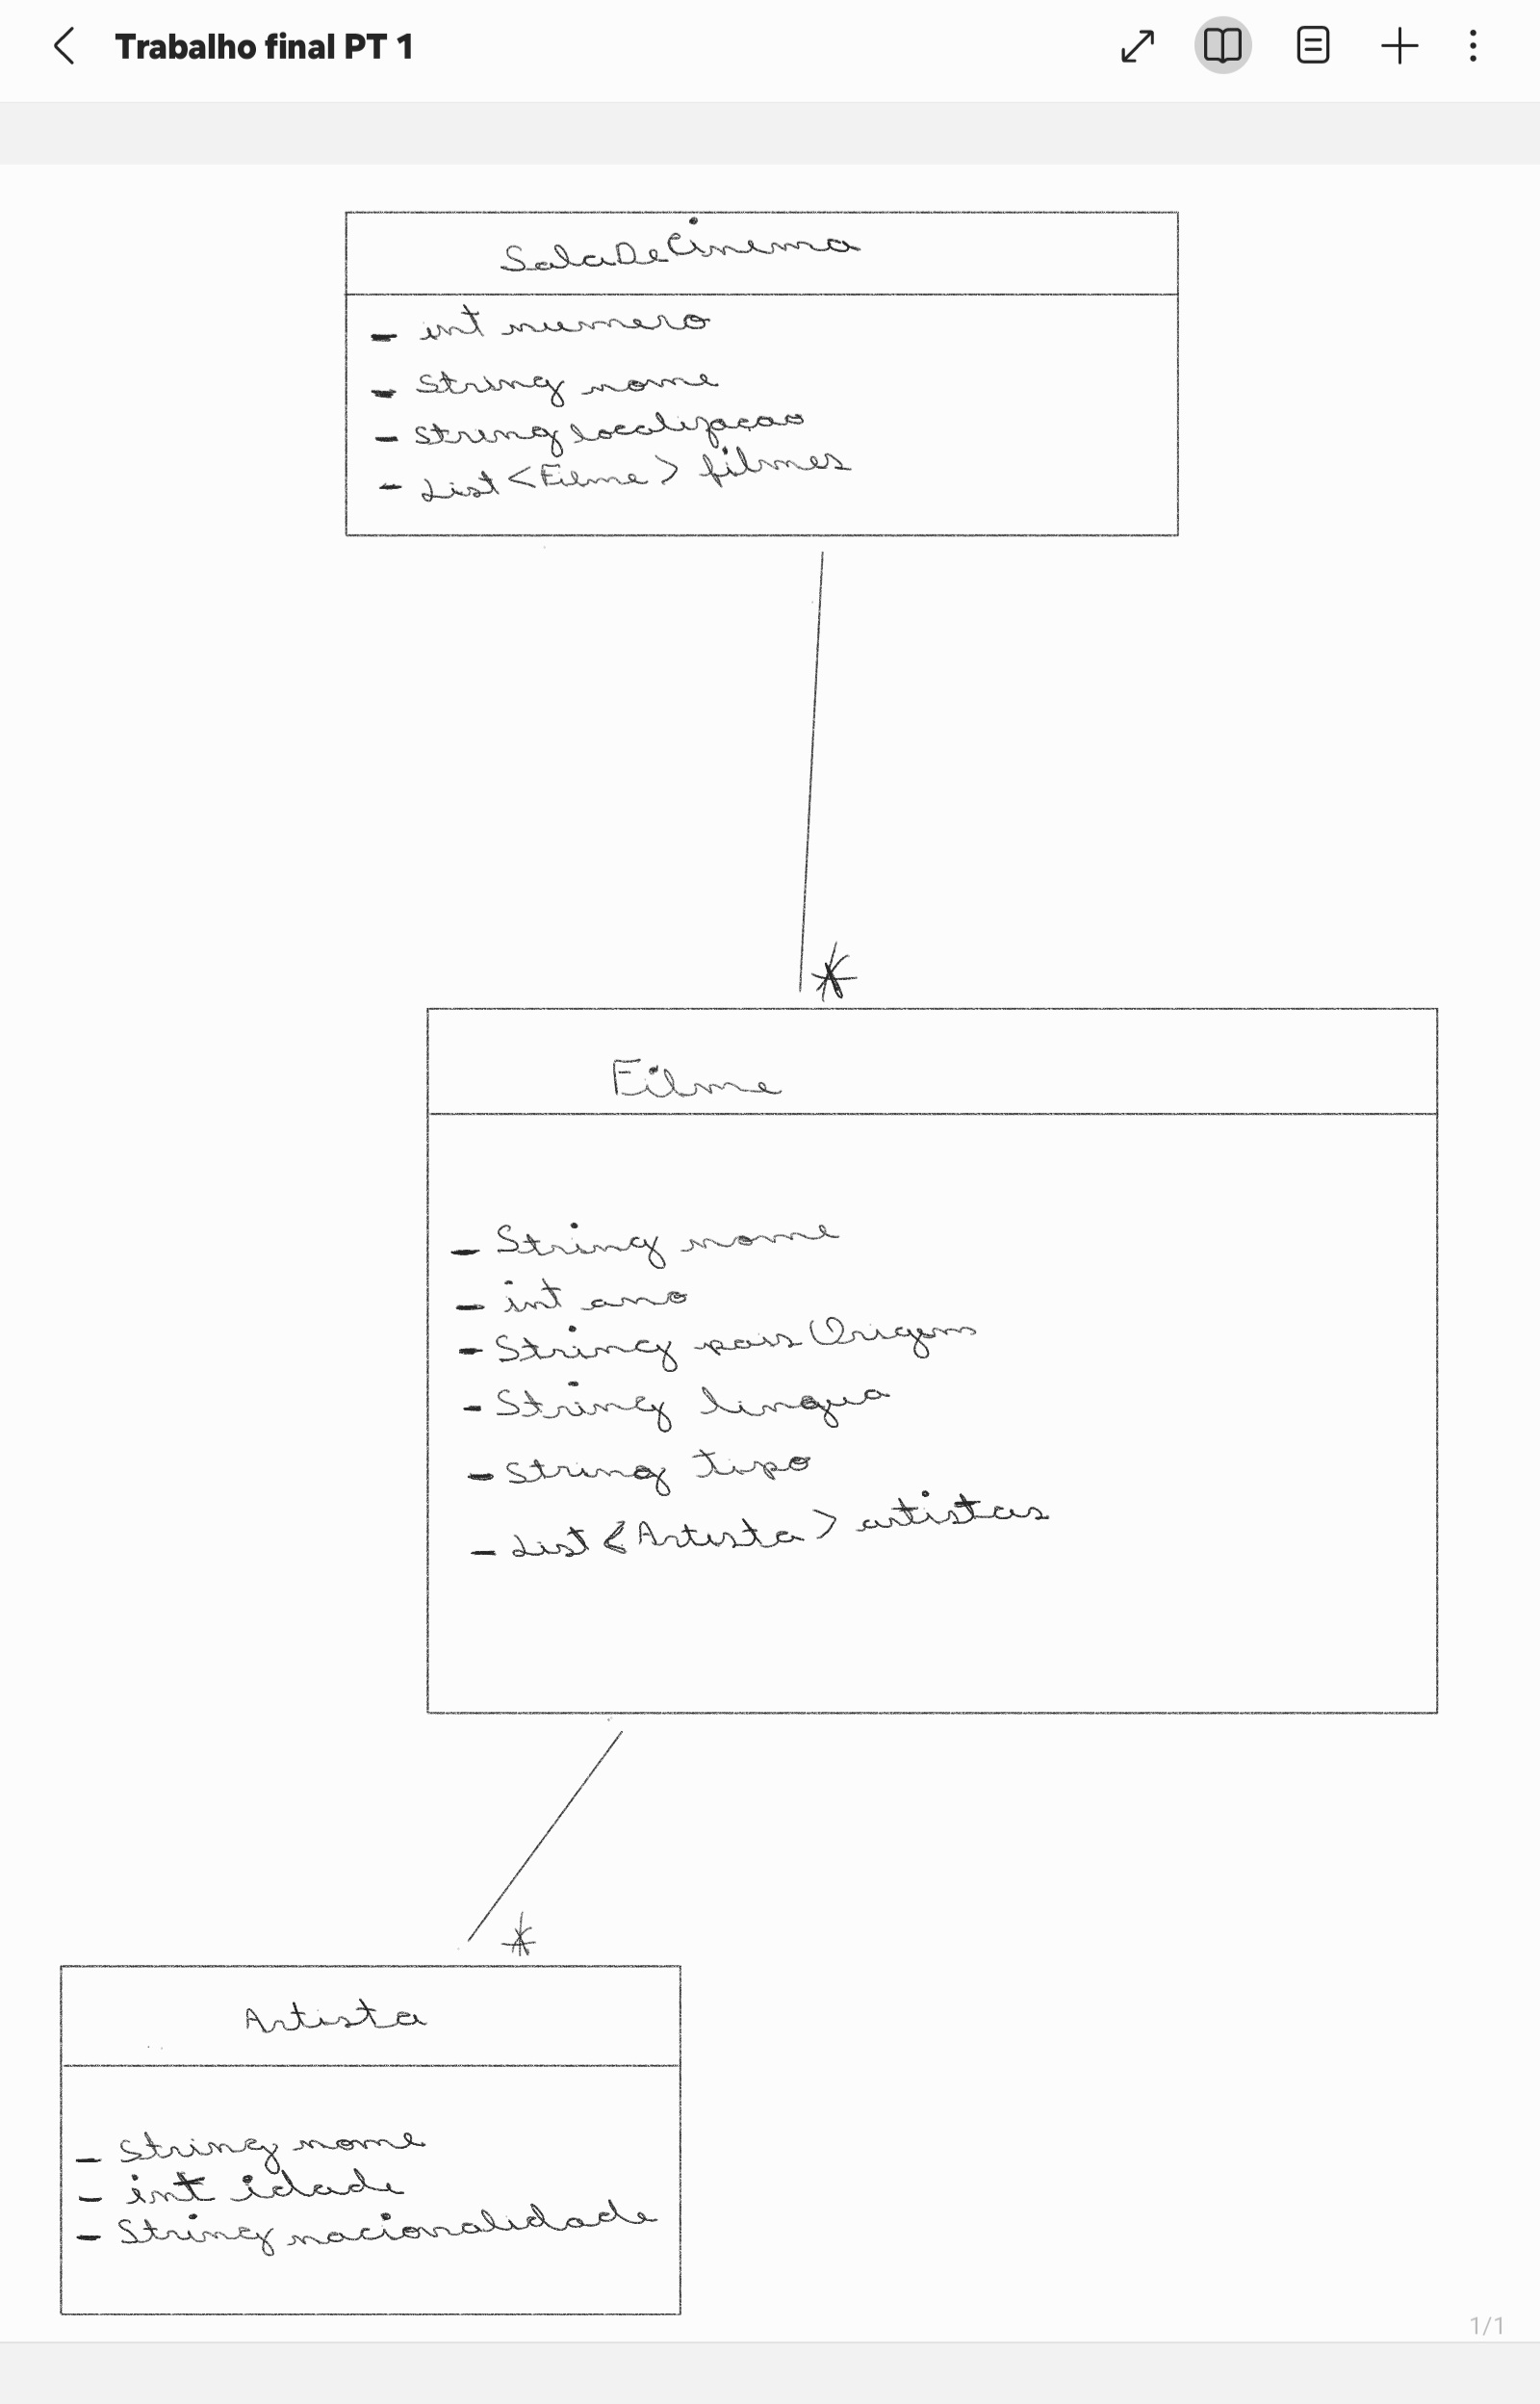 Trabalho final PT 1
SalaDeCinema
- int numero
- String nome
- String localizacao
- List <Filme> filmes
*
Filme
- String nome
- int ano
- String pais Origem
- String lingua
- String tipo
- List <Artista> artistas
*
Artista
- String nome
- int idade
- String nacionalidade
1/1